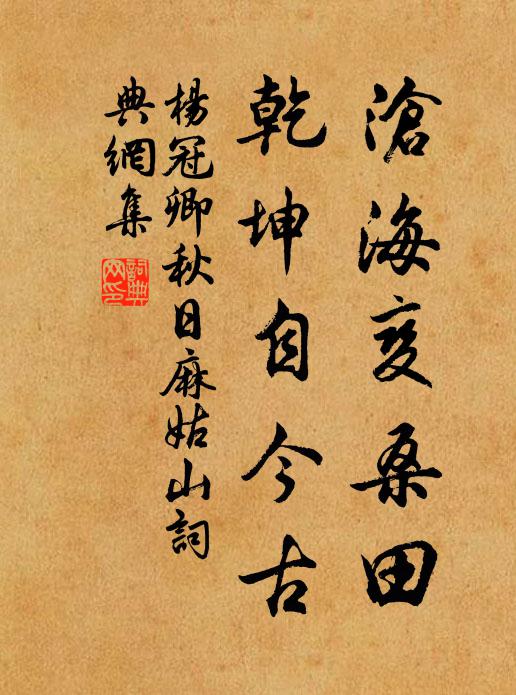 滄海变桑田
乾坤自今古
楊冠卿秋日麻姑山詞
典網集
詞典
网印